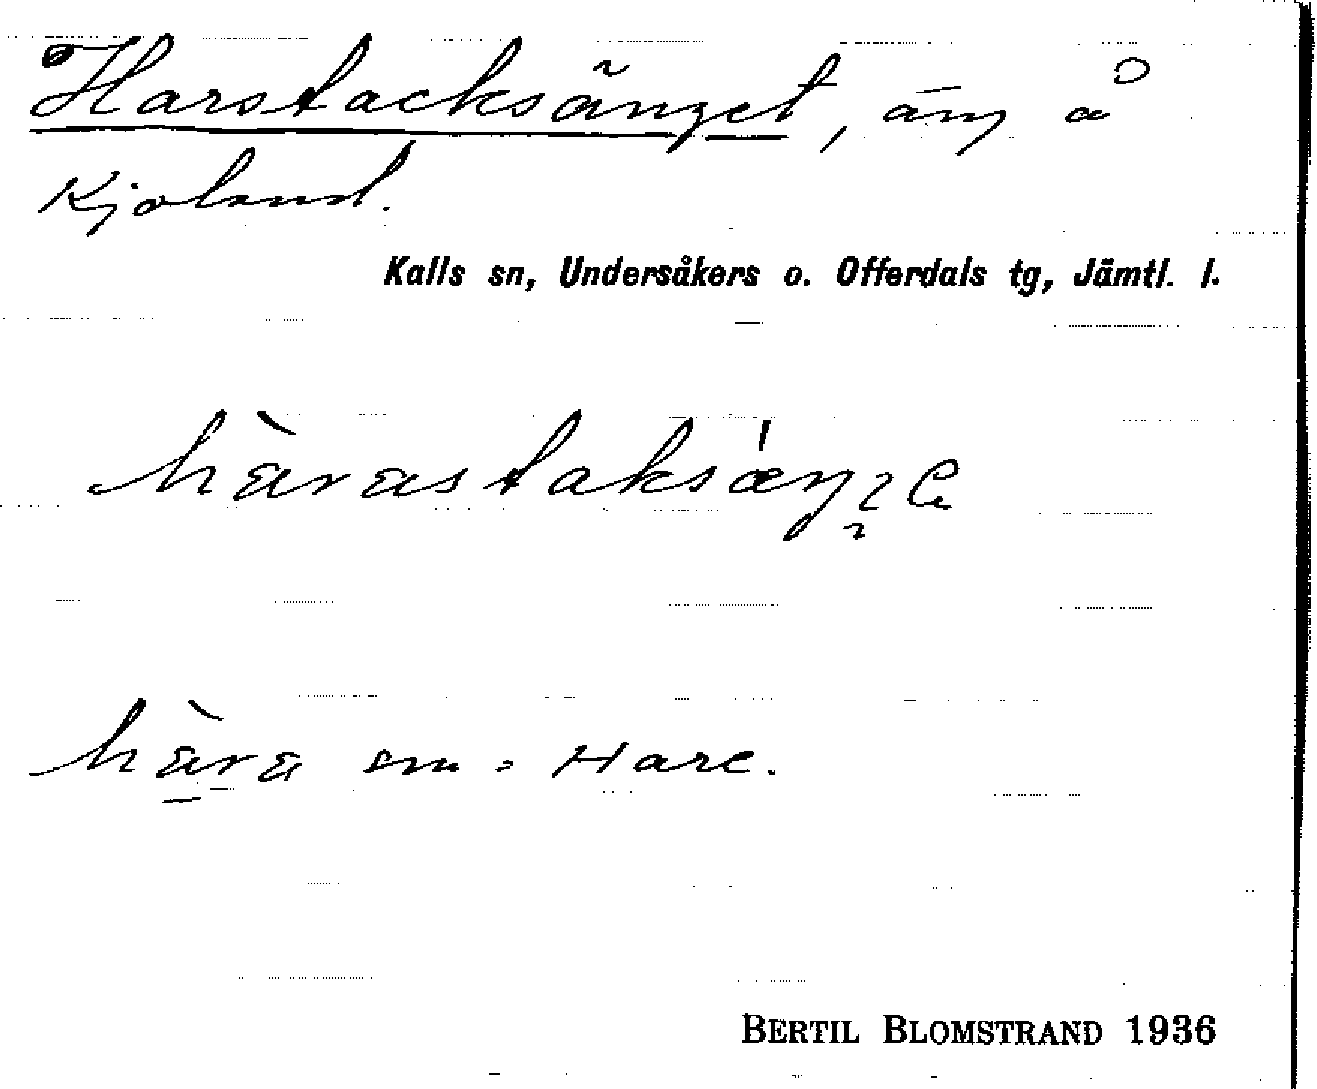 Harstacksänget, äng å
Kjoland.
Kalls sn, Undersåkers o. Offerdals tg, Jämtl. l.
hàrastaks
hàra sm = Hare.
BERTIL BLOMSTRAND 1936